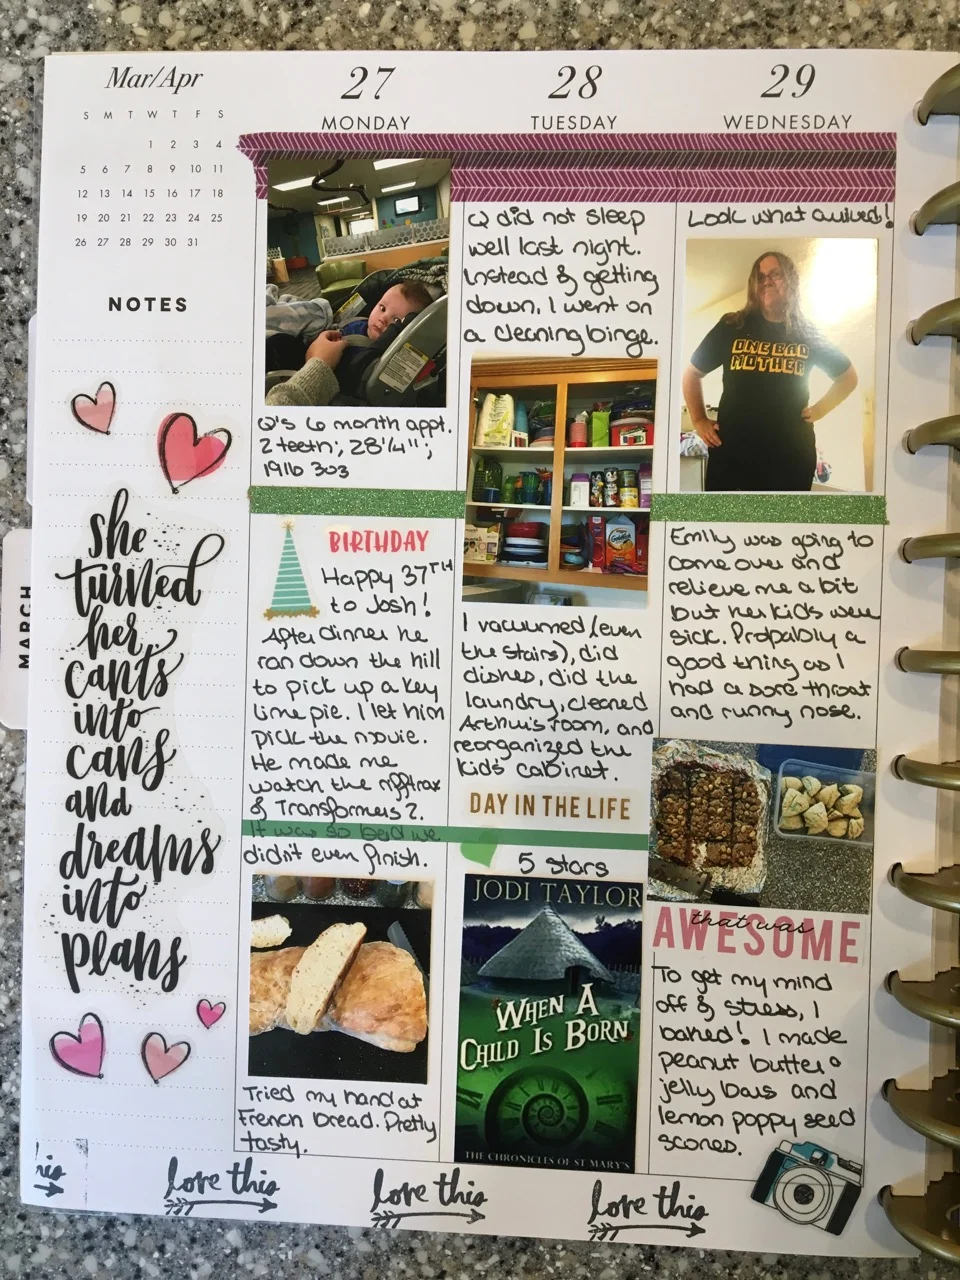 Mar/Apr
S M T W T F S
1 2 3 4
5 6 7 8 9 10 11
12 13 14 15 16 17 18
19 20 21 22 23 24 25
26 27 28 29 30 31
NOTES
she
turned
her
cants
into
cans
and
dreams
into
plans
MARCH
27
MONDAY
Q's 6 month appt.
2 teeth; 28 1/4";
19lb 3oz
BIRTHDAY
Happy 37TH
to Josh!
After dinner he
ran down the hill
to pick up a key
lime pie. I let him
pick the movie.
He made me
watch the rifftrax
of Transformers 2.
It was so bad we
didn't even finish.
Tried my hand at
French bread. Pretty
tasty.
28
TUESDAY
Q did not sleep
well last night.
Instead of getting
down, I went on
a cleaning binge.
I vacuumed (even
the stairs), did
dishes, did the
laundry, cleaned
Arthur's room, and
reorganized the
kid's cabinet.
DAY IN THE LIFE
5 stars
JODI TAYLOR
WHEN A
CHILD IS BORN
THE CHRONICLES OF ST MARY'S
29
WEDNESDAY
Look what arrived!
ONE BAD
MOTHER
Emily was going to
come over and
relieve me a bit
but her kids were
sick. Probably a
good thing as I
had a sore throat
and runny nose.
that was
AWESOME
To get my mind
off of stress, I
baked! I made
peanut butter &
jelly bars and
lemon poppy seed
scones.
his
love this
love this
love this